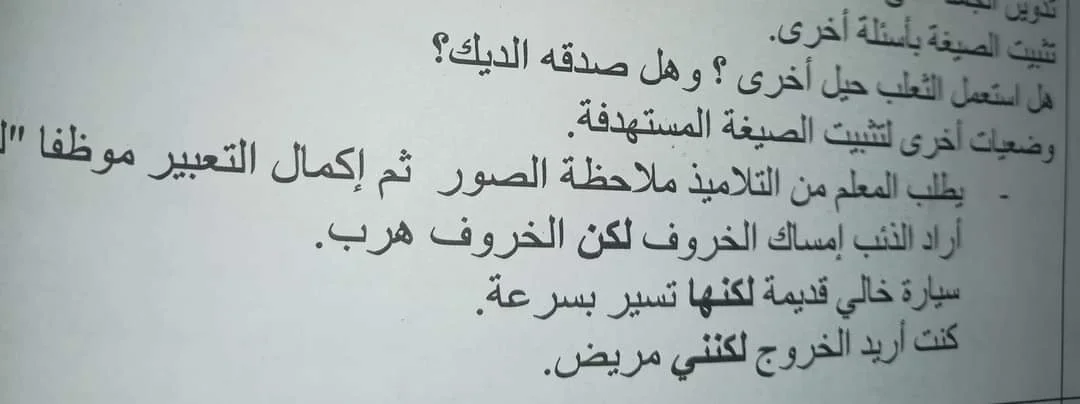 تثبيت الصيغة بأسئلة أخرى.
هل استعمل الثعلب حيل أخرى ؟ وهل صدقه الديك؟
وضعيات أخرى لتثبيت الصيغة المستهدفة.
- يطلب المعلم من التلاميذ ملاحظة الصور ثم إكمال التعبير موظفا "
أراد الذئب إمساك الخروف لكن الخروف هرب.
سيارة خالي قديمة لكنها تسير بسرعة.
كنت أريد الخروج لكنني مريض.